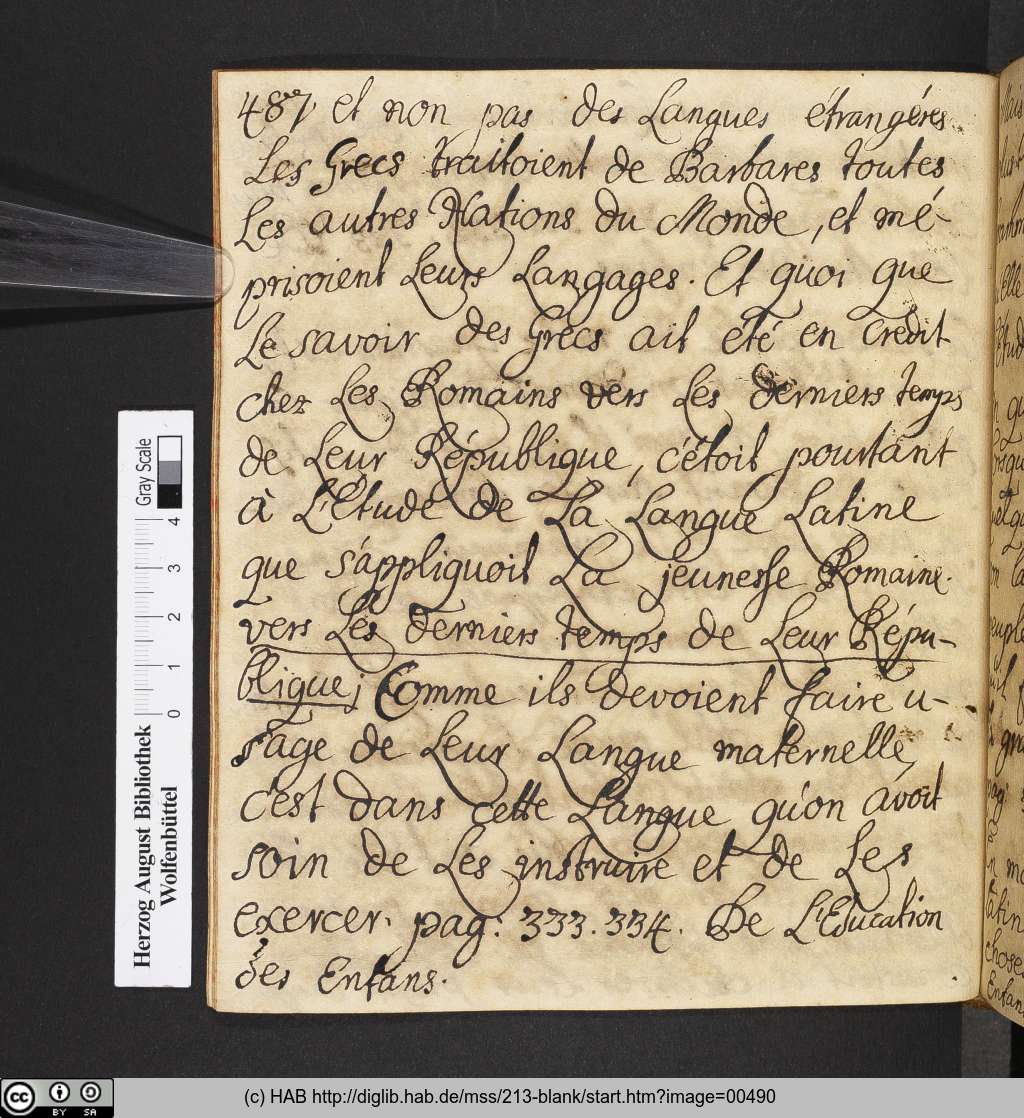 487, et non pas des Langues étrangéres
Les Grecs traitoient de Barbares toutes
Les autres Nations du Monde, et mé-
prisoient Leurs Langages. Et quoi que
Le savoir des Grecs ait été en credit
chez Les Romains vers Les derniers temps
de Leur République, c'étoit pourtant
à L'Etude de La Langue Latine
que s'appliquoit La jeunesse Romaine.
vers Les derniers temps de Leur Répu-
blique; Comme ils devoient faire u-
sage de Leur Langue maternelle,
c'est dans cette Langue qu'on avoit
soin de Les instruire et de Les
exercer. pag: 333. 334. De L'Education
des Enfans.
Herzog August Bibliothek
Wolfenbüttel
0 1 2 3 4
Gray Scale
cc BY SA
(c) HAB http://diglib.hab.de/mss/213-blank/start.htm?image=00490